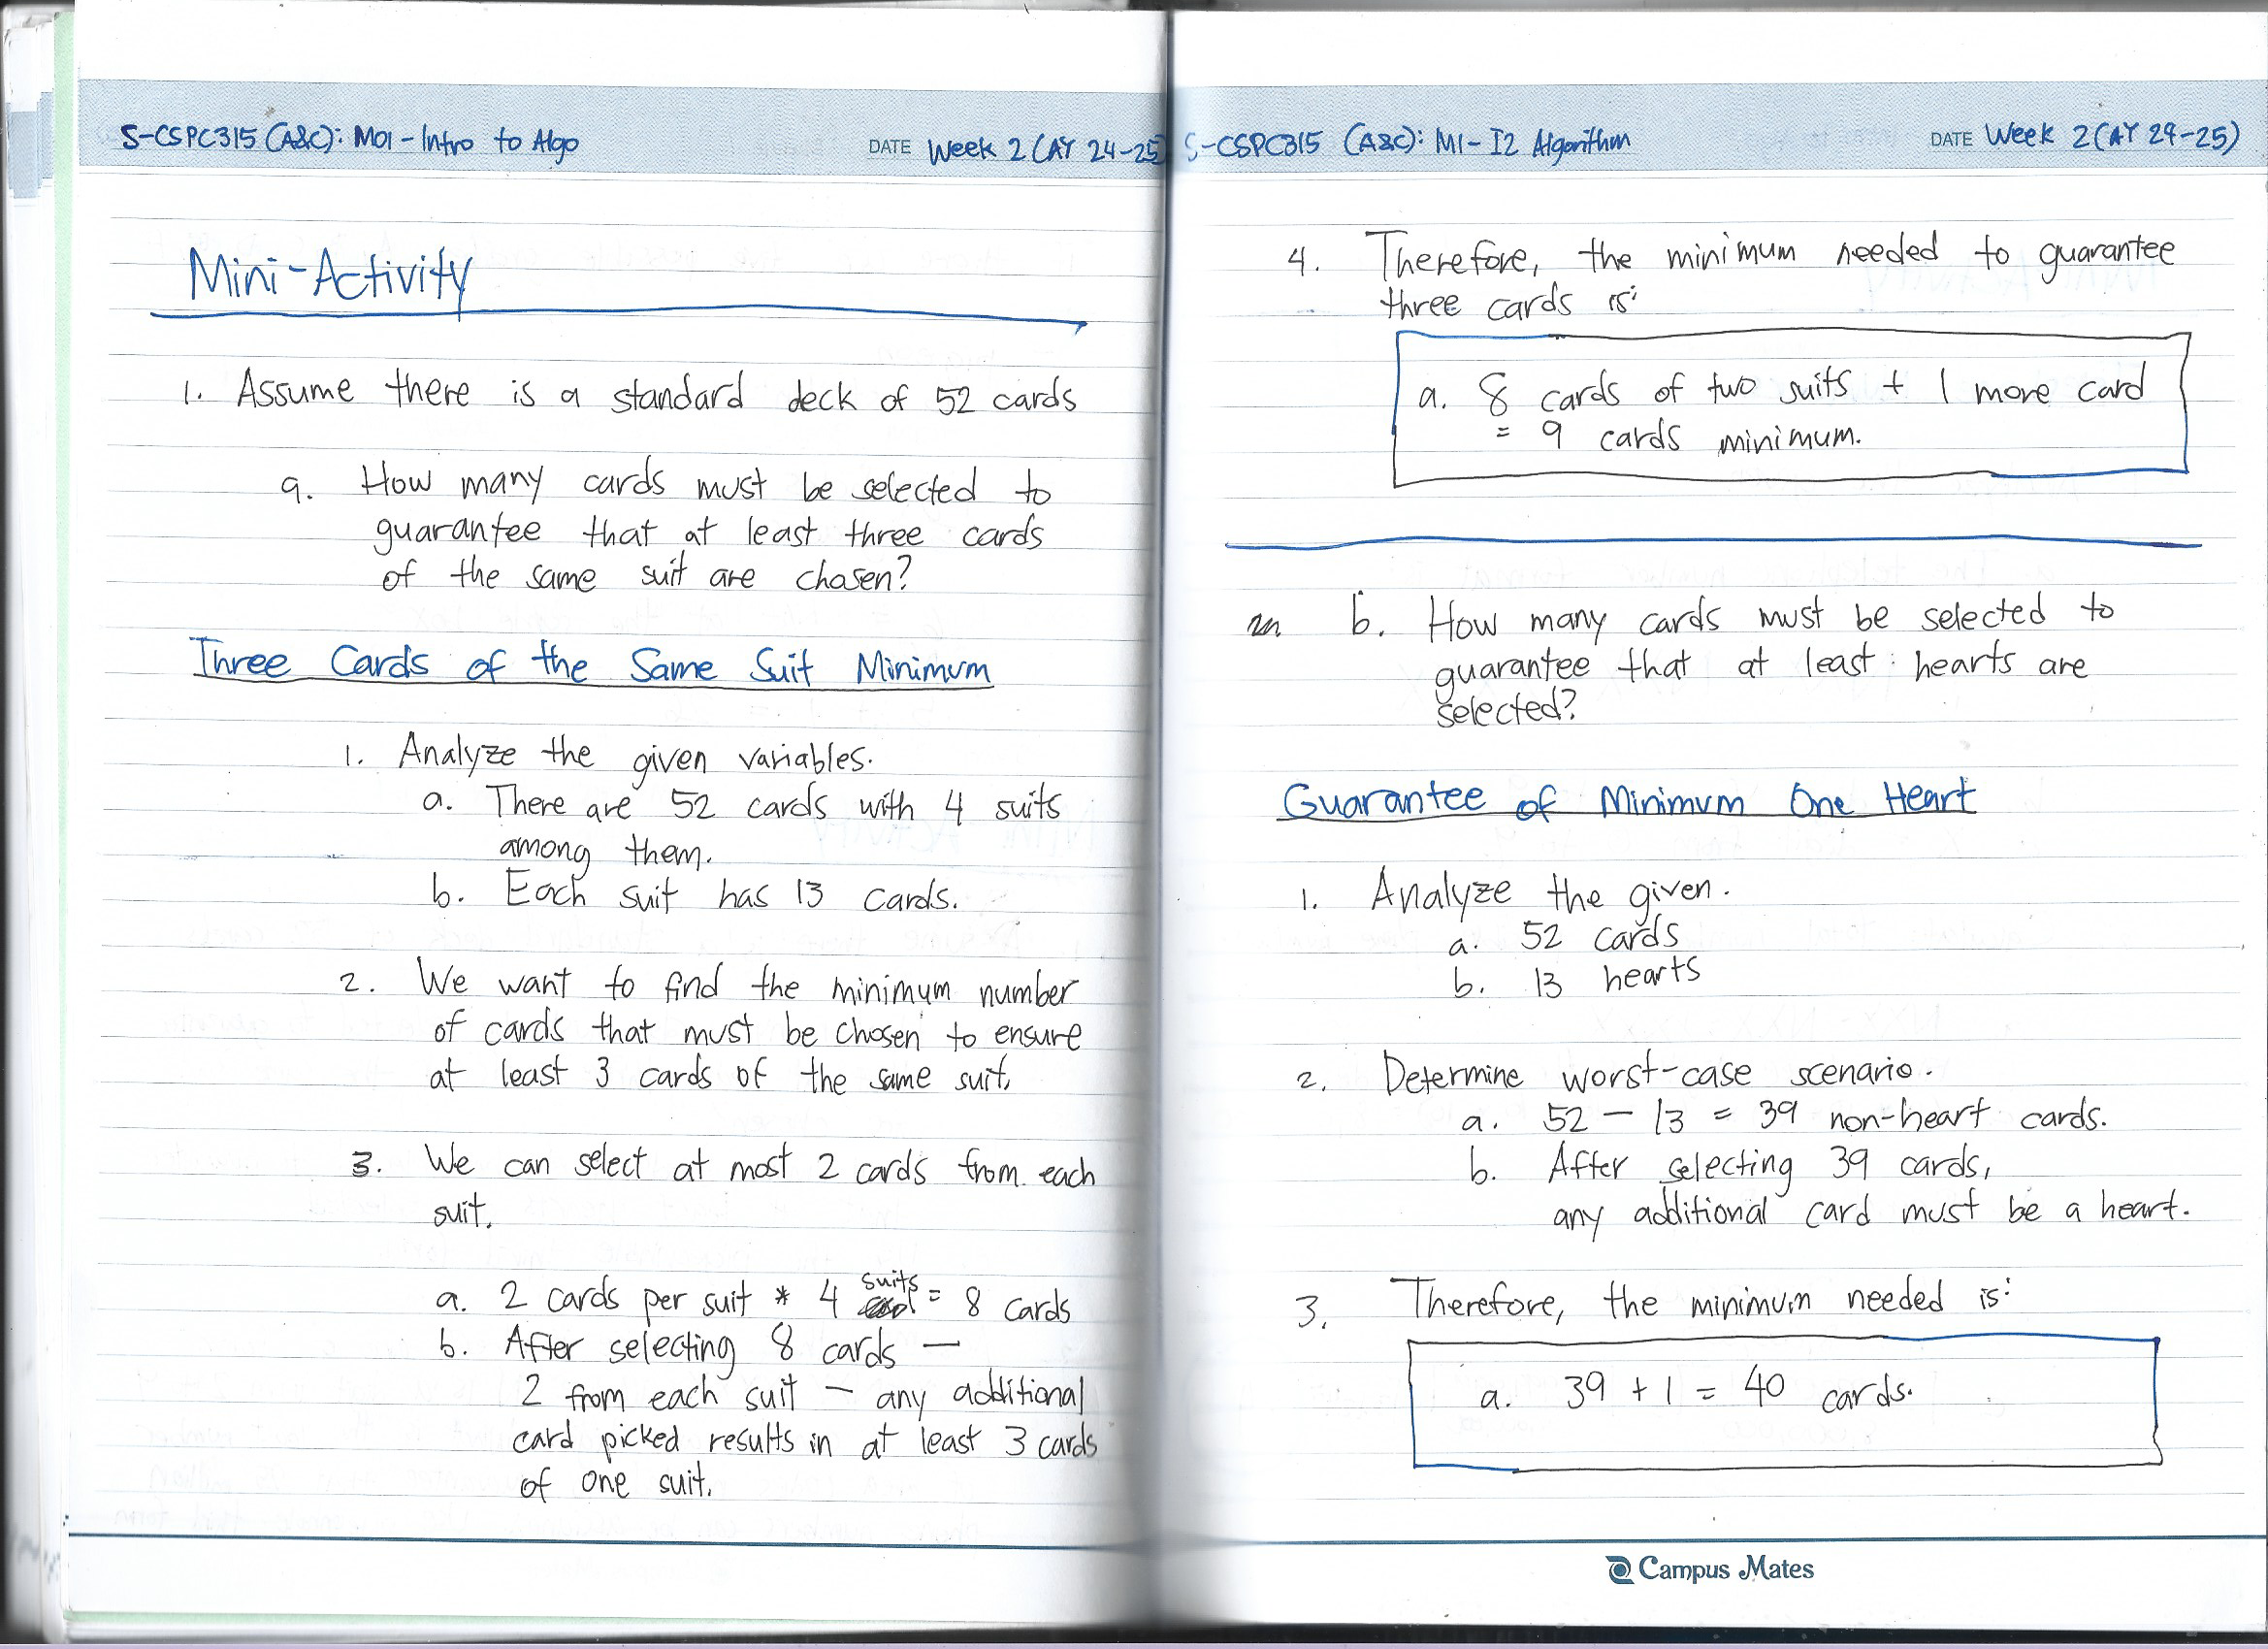 S-CSPC315 (A&C): M01 - Intro to Algo
DATE Week 2 (AY 24-25)
Mini-Activity
1. Assume there is a standard deck of 52 cards
a. How many cards must be selected to
guarantee that at least three cards
of the same suit are chosen?
Three Cards of the Same Suit Minimum
1. Analyze the given variables.
a. There are 52 cards with 4 suits
among them.
b. Each suit has 13 cards.
2. We want to find the minimum number
of cards that must be chosen to ensure
at least 3 cards of the same suit.
3. We can select at most 2 cards from each
suit.
a. 2 cards per suit * 4 suits = 8 cards
b. After selecting 8 cards —
2 from each suit — any additional
card picked results in at least 3 cards
of one suit.
S-CSPC315 (A&C): M1- I2 Algorithm
DATE Week 2 (AY 24-25)
4. Therefore, the minimum needed to guarantee
three cards is:
a. 8 cards of two suits + 1 more card
= 9 cards minimum.
b. How many cards must be selected to
guarantee that at least hearts are
selected?
Guarantee of Minimum One Heart
1. Analyze the given.
a. 52 cards
b. 13 hearts
2. Determine worst-case scenario.
a. 52 - 13 = 39 non-heart cards.
b. After selecting 39 cards,
any additional card must be a heart.
3. Therefore, the minimum needed is:
a. 39 + 1 = 40 cards.
Campus Mates